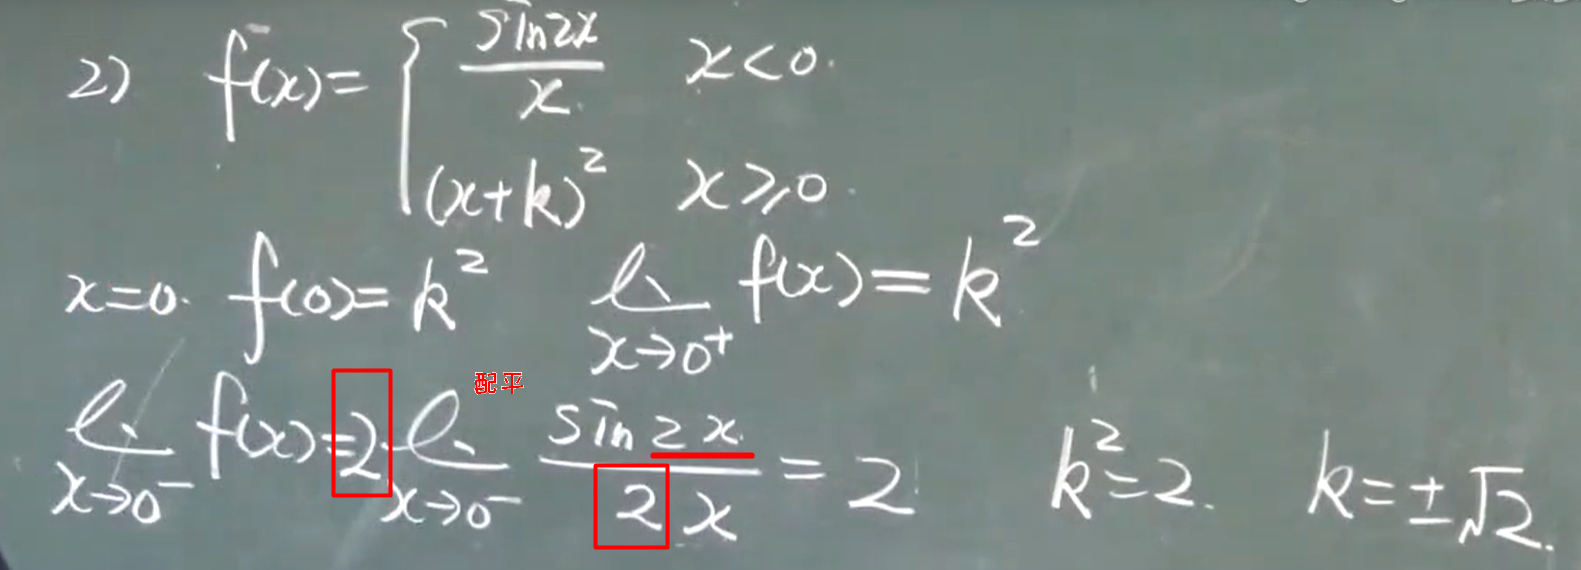 2) f(x)= { sin2x / x   x<0.
(x+k)²   x≥0.
x=0. f(0)=k²   lim x→0⁺ f(x)=k²
配平
lim x→0⁻ f(x)=2 lim x→0⁻ sin2x / 2x = 2   k²=2.   k=±√2.